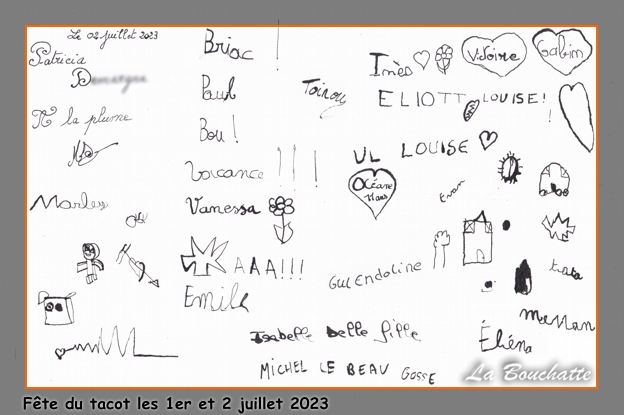 Le 02 juillet 2023
Patricia
à la plume
Marley
Briac !
Paul
Bou !
Vacance !! !
Vanessa
AAA!!!
Emile
Inès
Victoire
Gabin
ELIOTT
LOUISE!
UL
LOUISE
Océane
Evan
Guendoline
maman
Éliéna
Isabelle belle fille
MICHEL LE BEAU GOSSE
La Bouchatte
Fête du tacot les 1er et 2 juillet 2023